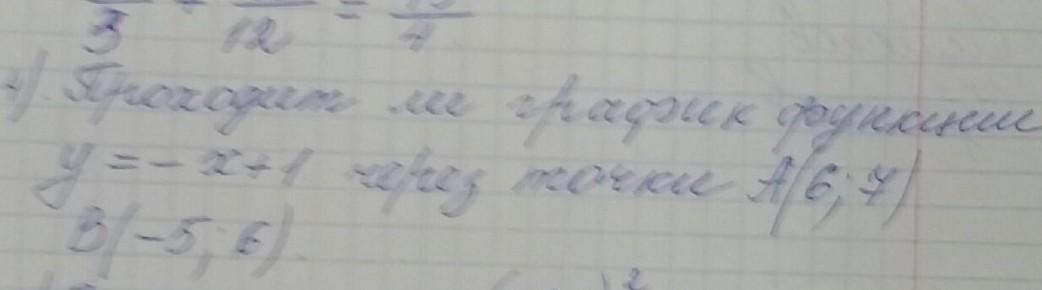 3 12 = 7
4) Проходит ли график функции
y = - x + 1 через точки A(6; 7)
B(-5; 6).
2